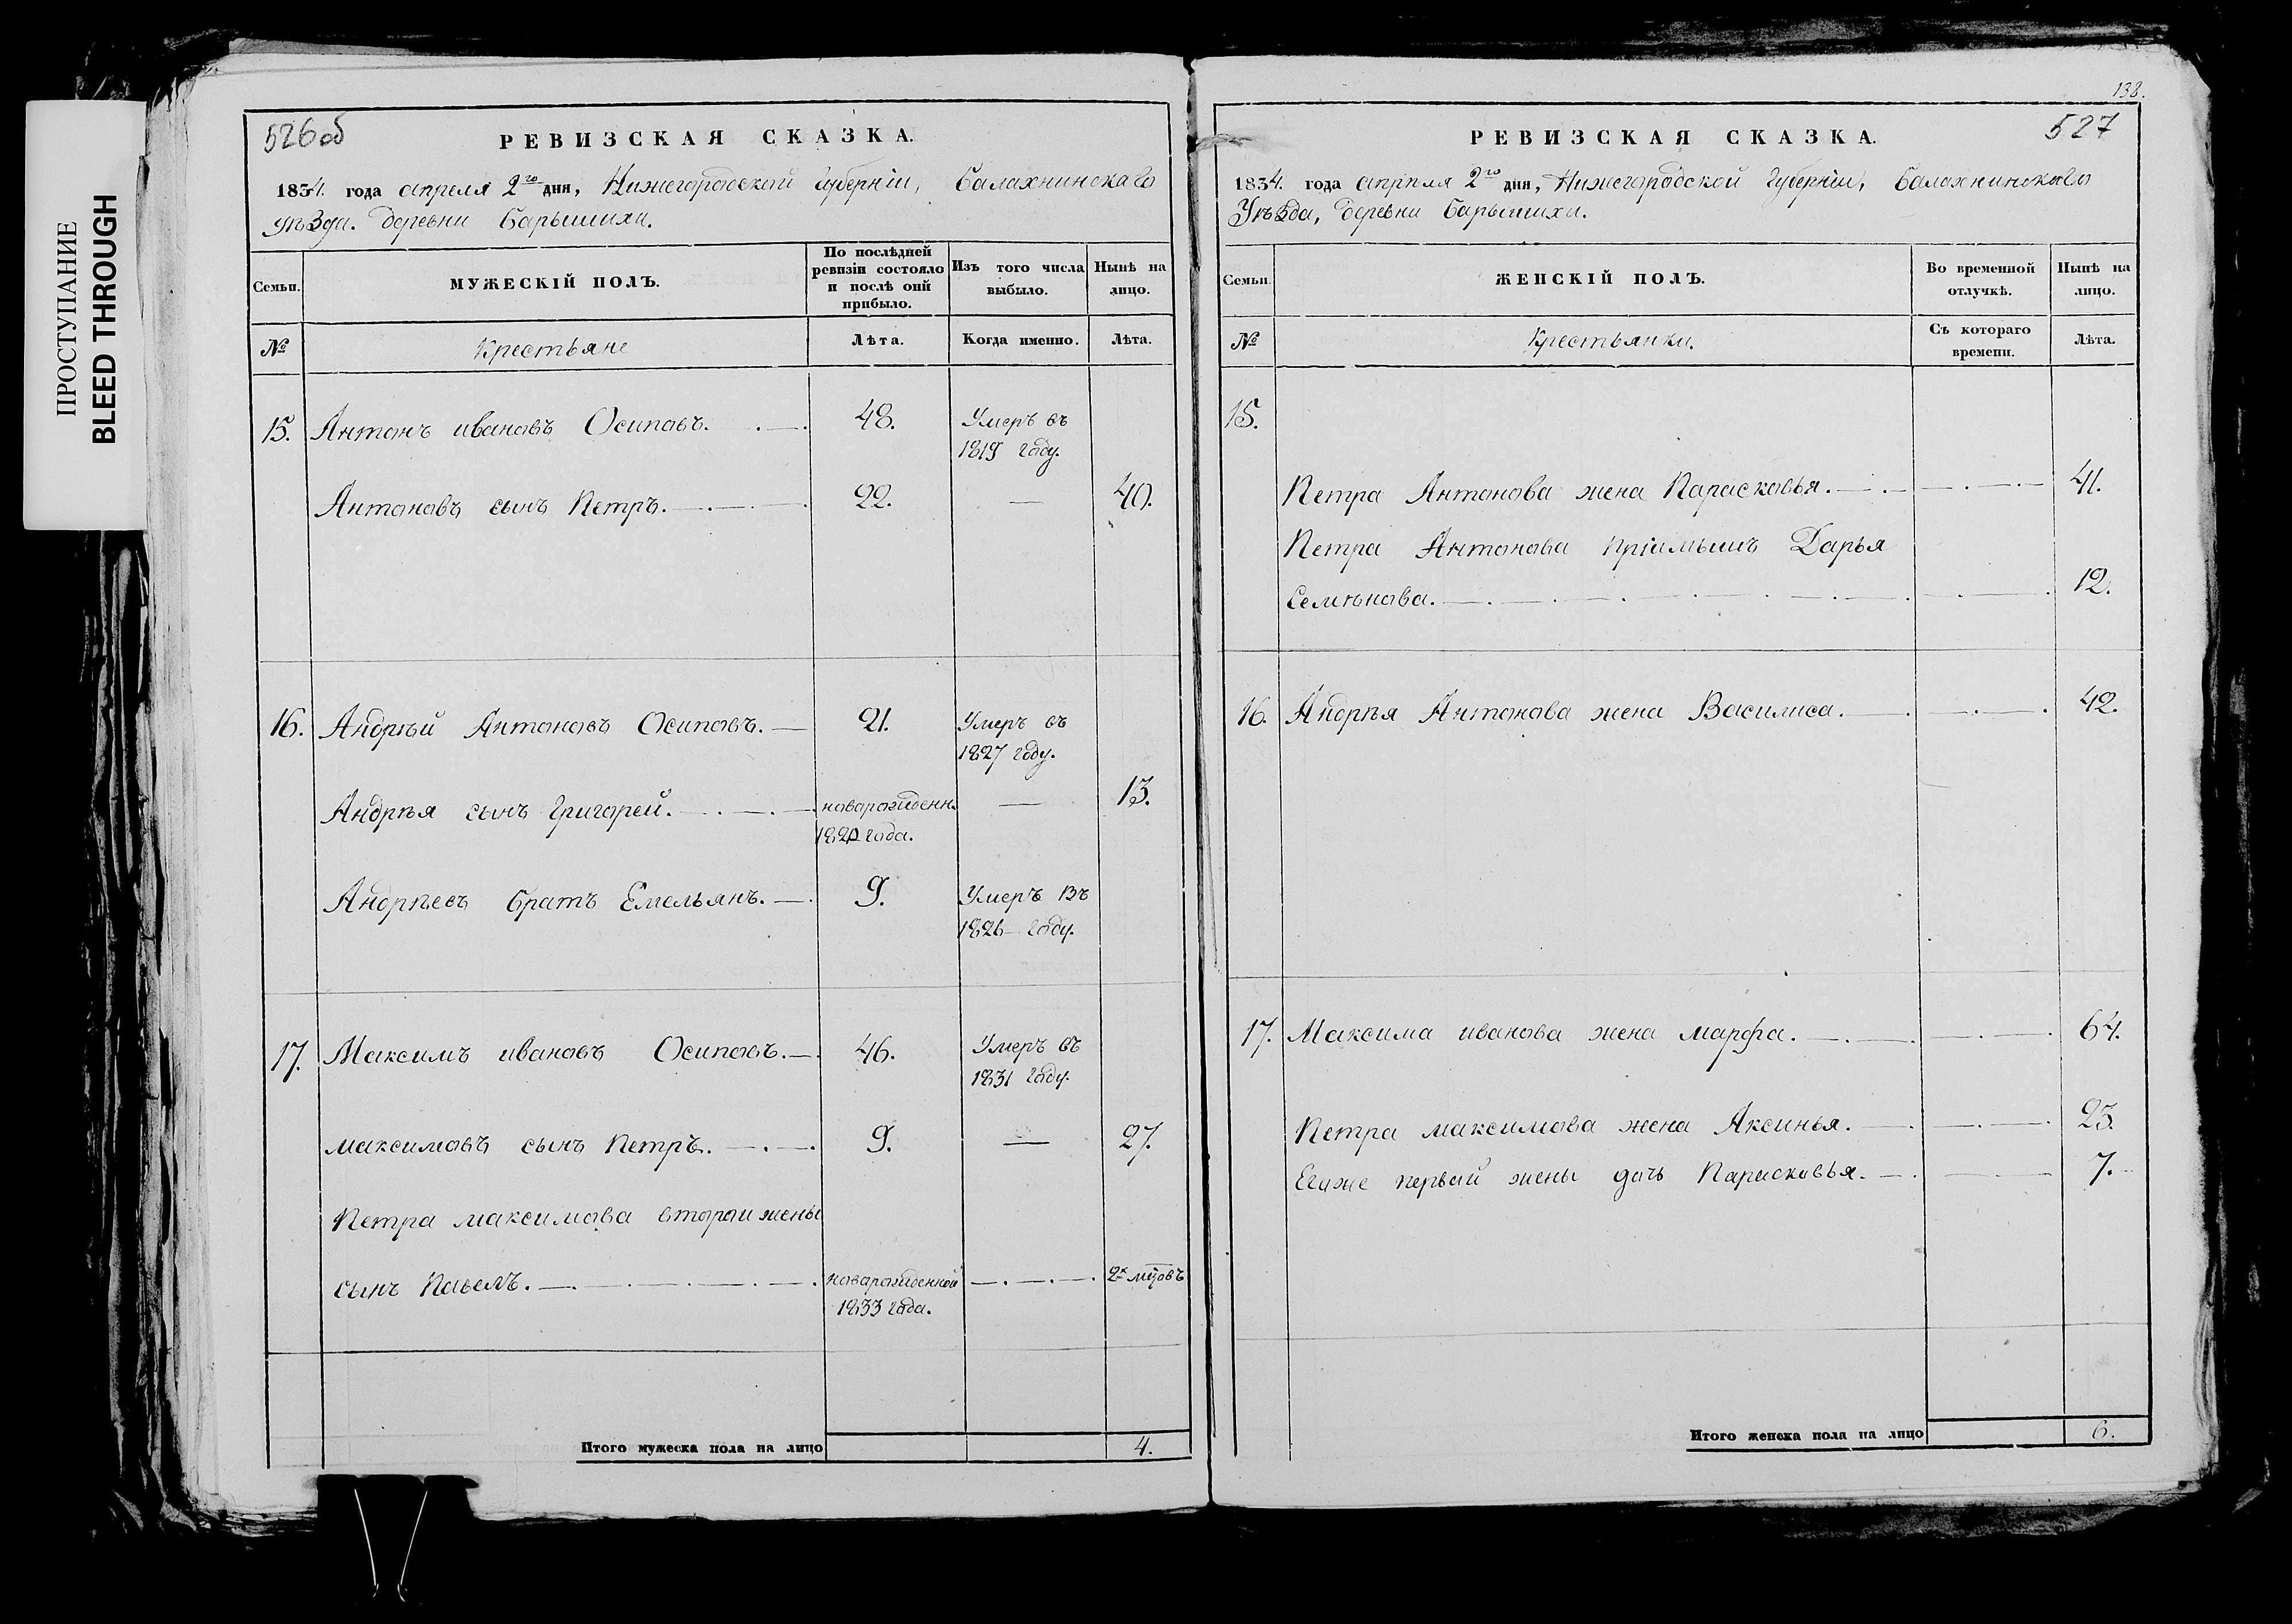 ПРОСТУПАНИЕ
BLEED THROUGH
526об
РЕВИЗСКАЯ СКАЗКА.
1834. года апреля 2го дня, Нижегородской губерніи, Балахнинскаго
уѣзда. деревни Барышихи.
Семьи.
МУЖЕСКІЙ ПОЛЪ.
По послѣдней ревизіи состояло и послѣ оній прибыло.
Изъ того числа выбыло.
Нынѣ на лицо.
№
Крестьяне
Лѣта.
Когда именно.
Лѣта.
15. Антонъ ивановъ Осиповъ. 48. Умеръ въ
1819 году.
Антоновъ сынъ Петръ. 22. — 40.
16. Андрѣй Антоновъ Осиповъ. — 21. Умеръ въ
1827 году.
Андрѣя сынъ Григорей. новорожденн. — 13.
1820 года.
Андрѣевъ братъ Емельянъ. — 9. Умеръ въ
1826 году.
17. Максимъ ивановъ Осиповъ. — 46. Умеръ въ
1831 году.
максимовъ сынъ Петръ. 9. — 27.
Петра максимова второи жены
сынъ Павелъ. новорожденной 2х мцовъ
1833 года.
Итого мужеска пола на лицо 4.
138.
527
РЕВИЗСКАЯ СКАЗКА.
1834. года апрѣля 2го дня, Нижегородской Губерніи, Балахнинскаго
Уѣзда, деревни Барышихи.
Семьи.
ЖЕНСКІЙ ПОЛЪ.
Во временной отлучкѣ.
Нынѣ на лицо.
№
Крестьянки.
Съ котораго времени.
Лѣта.
15.
Петра Антонова жена Парасковья. 41.
Петра Антонова пріимышъ Дарья
Семѣнова. 12.
16. Андрѣя Антонова жена Василиса. 42.
17. Максима иванова жена марфа. 64.
Петра максимова жена Аксинья. 23.
Егоже первай жены дочь Парасковья. 7.
Итого женска пола на лицо 6.